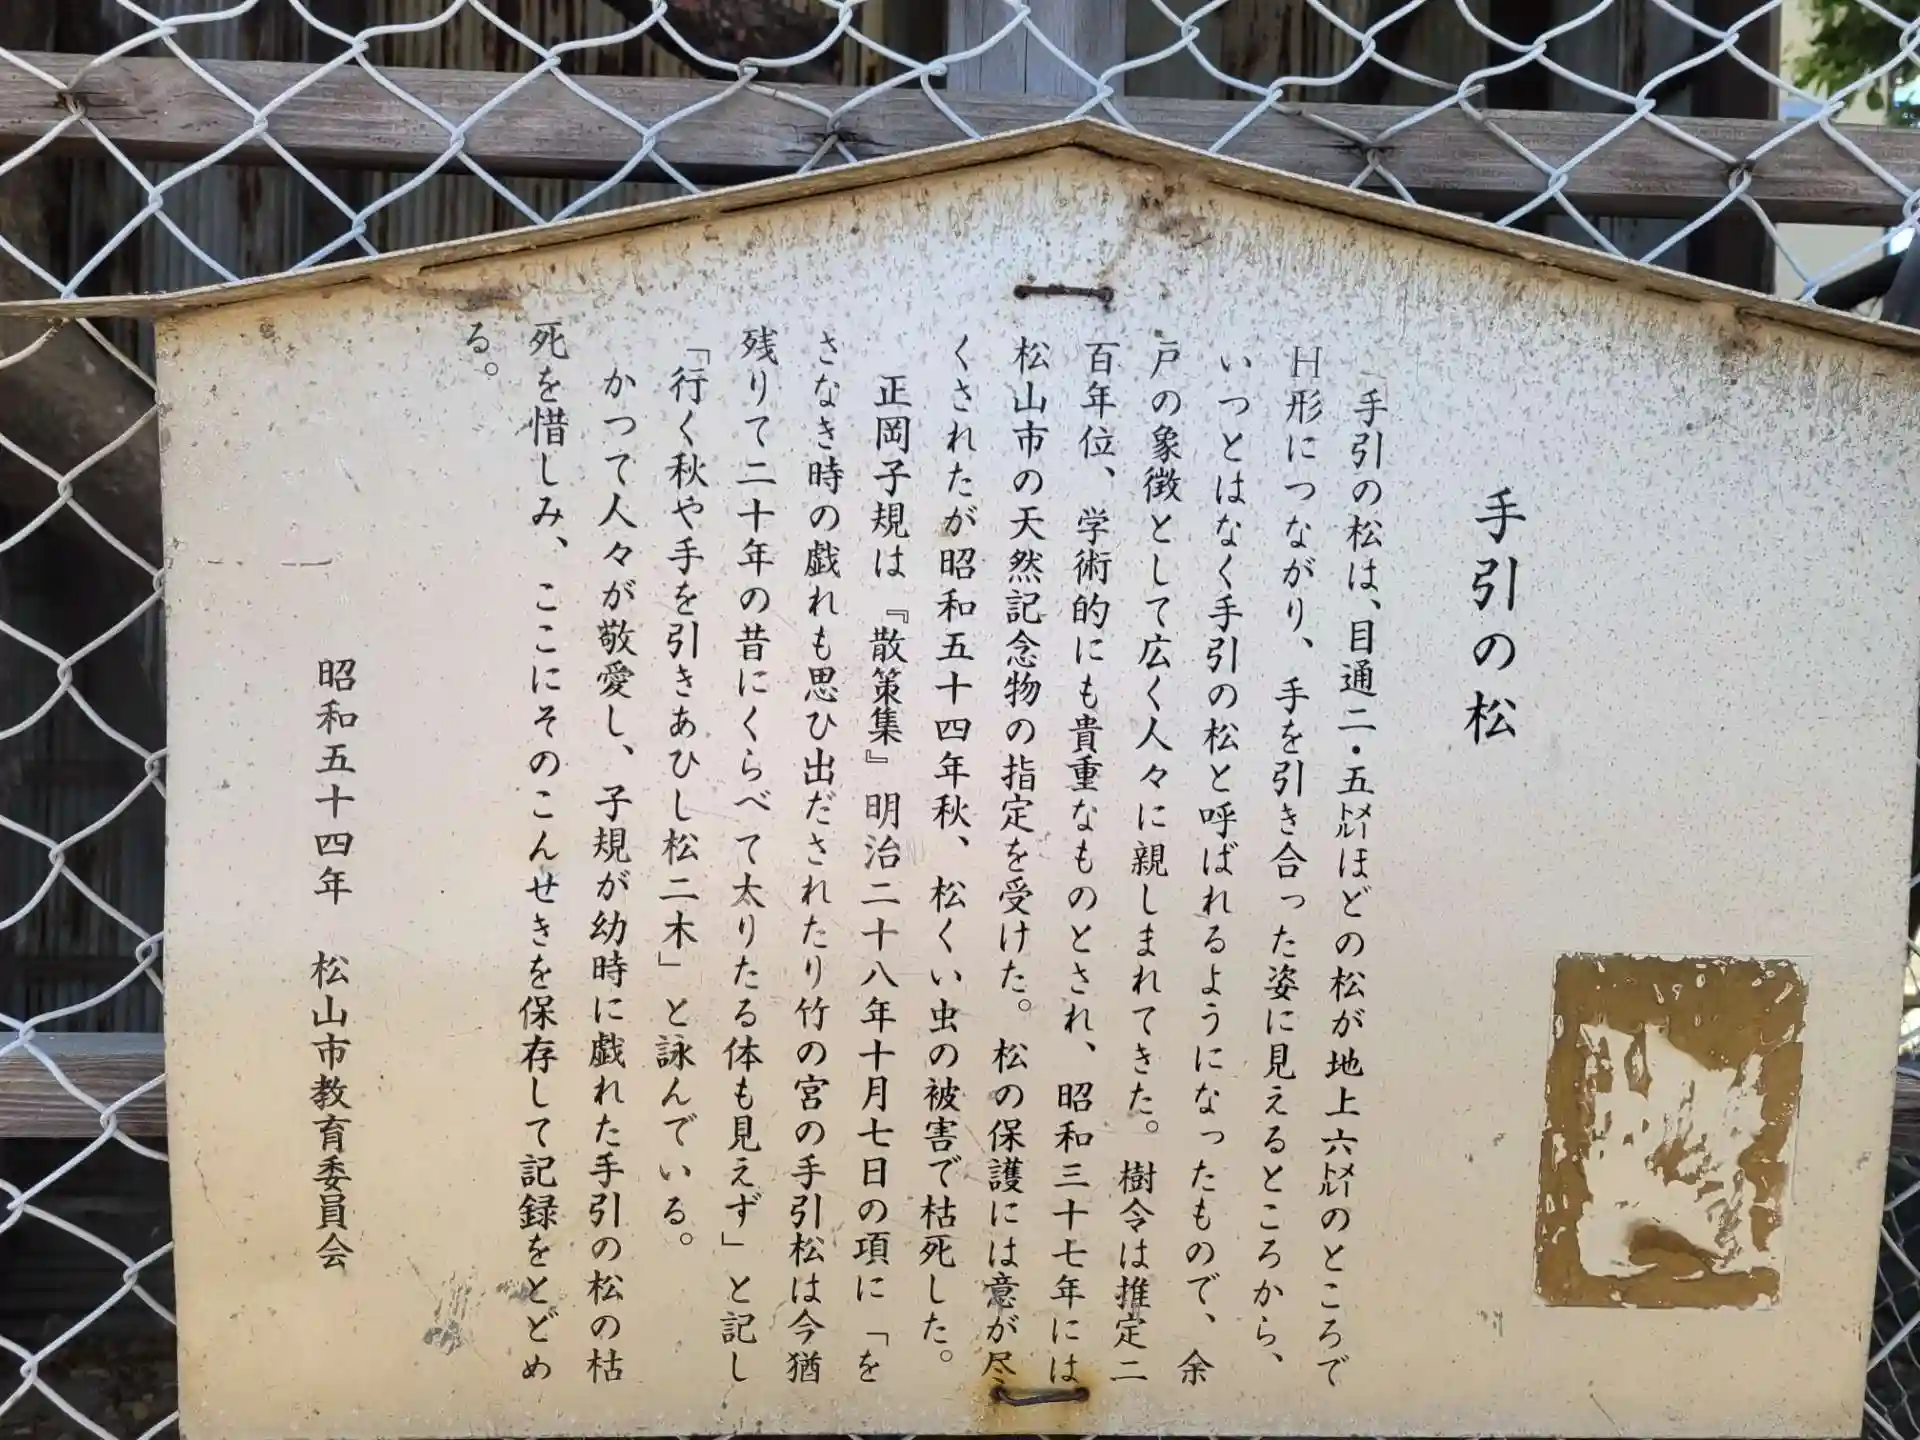 手引の松
手引の松は、目通二・五㍍ほどの松が地上六㍍のところで
H形につながり、手を引き合った姿に見えるところから、
いつとはなく手引の松と呼ばれるようになったもので、余
戸の象徴として広く人々に親しまれてきた。樹令は推定二
百年位、学術的にも貴重なものとされ、昭和三十七年には
松山市の天然記念物の指定を受けた。松の保護には意が尽
くされたが昭和五十四年秋、松くい虫の被害で枯死した。
正岡子規は『散策集』明治二十八年十月七日の項に「を
さなき時の戯れも思ひ出だされたり竹の宮の手引松は今猶
残りて二十年の昔にくらべて太りたる体も見えず」と記し
「行く秋や手を引きあひし松二木」と詠んでいる。
かつて人々が敬愛し、子規が幼時に戯れた手引の松の枯
死を惜しみ、ここにそのこんせきを保存して記録をとどめ
る。
昭和五十四年　松山市教育委員会